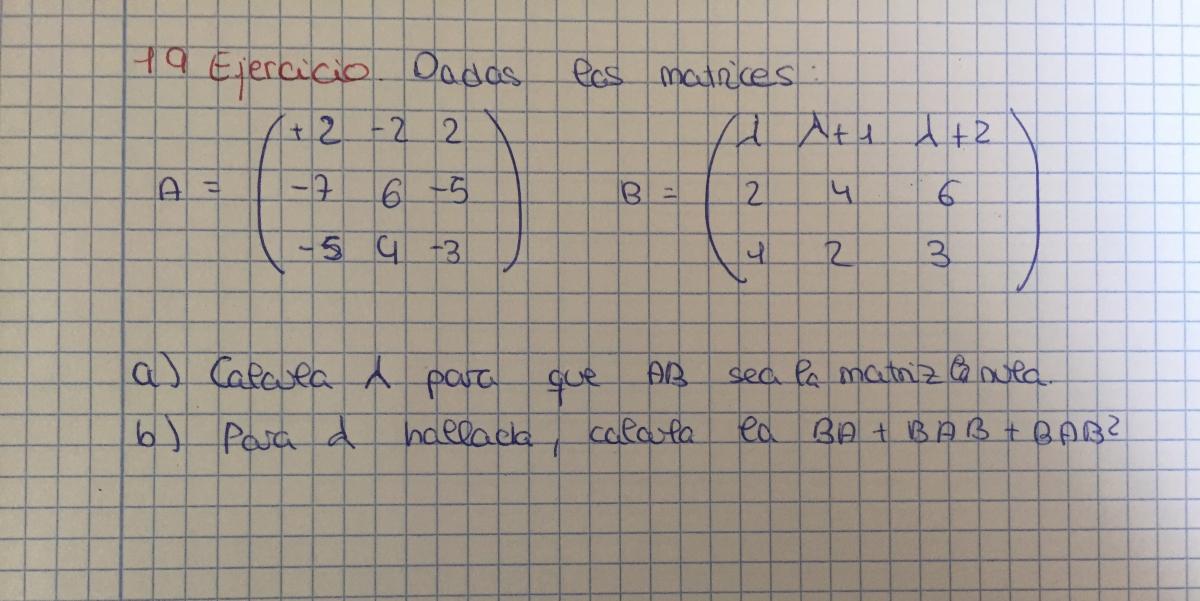 19 Ejercicio. Dadas las matrices:
A = ( +2 -2 2 ; -7 6 -5 ; -5 4 -3 ) B = ( λ λ+1 λ+2 ; 2 4 6 ; 1 2 3 )
a) Calcula λ para que AB sea la matriz la nula.
b) Para λ hallada, calcula la BA + BAB + BAB²